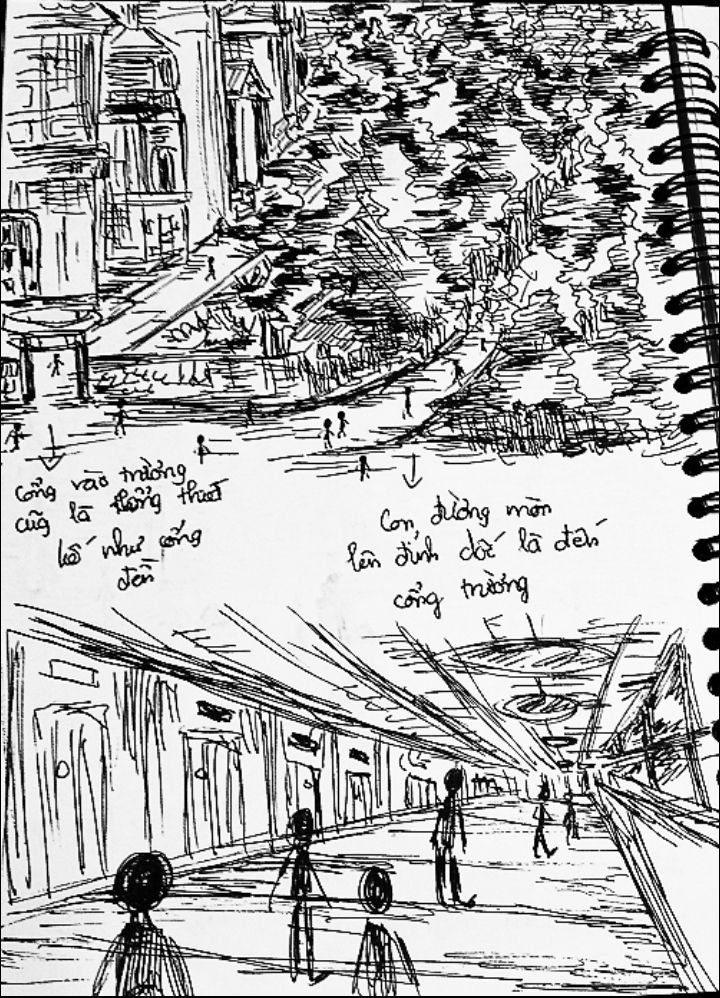 cổng vào trường
cũg là thiết
kế như cổng
đền
Con đường mòn
lên đỉnh dốc là đến
cổng trường